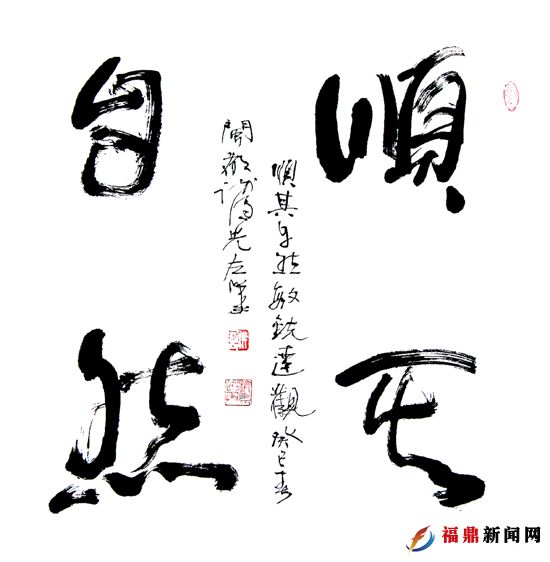 順其
自然
順其自然敏銳達觀癸巳春
閩都
先左筆
福鼎新闻网